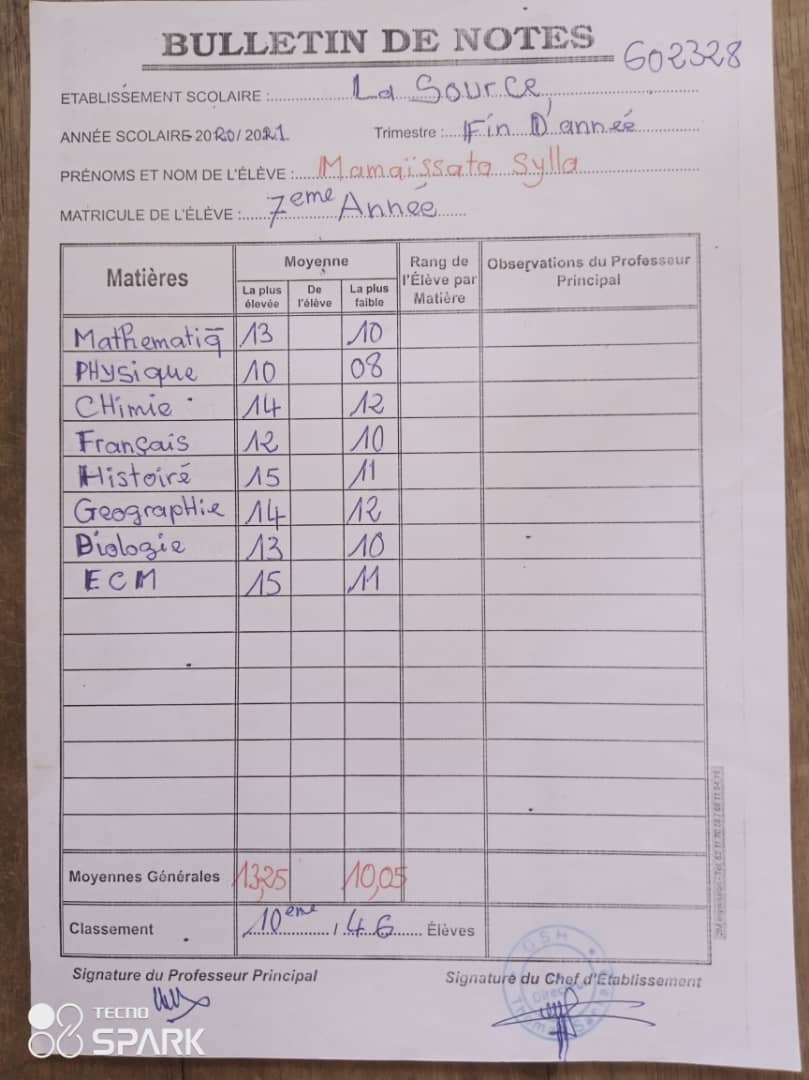 BULLETIN DE NOTES
602328
ETABLISSEMENT SCOLAIRE : La Source,
ANNÉE SCOLAIRE 2020/2021 Trimestre : Fin D'anneé
PRÉNOMS ET NOM DE L'ÉLÈVE : Mamaïssata Sylla
MATRICULE DE L'ÉLÈVE : 7eme Année
Matières Moyenne Rang de l'Élève par Matière Observations du Professeur Principal
La plus élevée De l'élève La plus faible
Mathematiq 13 10
PHysique 10 08
CHimie 14 12
Français 12 10
Histoiré 15 11
GeograpHie 14 12
Biologie 13 10
ECM 15 11
Moyennes Générales 13,25 10,05
Classement 10eme / 46 Élèves
Signature du Professeur Principal Signature du Chef d'Établissement
TECNO
SPARK